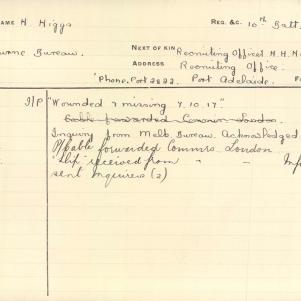 NAME H. Higgs REG. &C. 10th Batt.
NEXT OF KIN Recruiting Officer H.H.
Bureau.
ADDRESS Recruiting Office.
'Phone. Port 2822. Port Adelaide.
I/P "Wounded & missing 7.10.17."
Cable forwarded Commrs London
Inquiry from Melb. Bureau. Acknowledged.
Cable forwarded Commrs. London.
"Slip" received from " "
sent Inquirers (2)